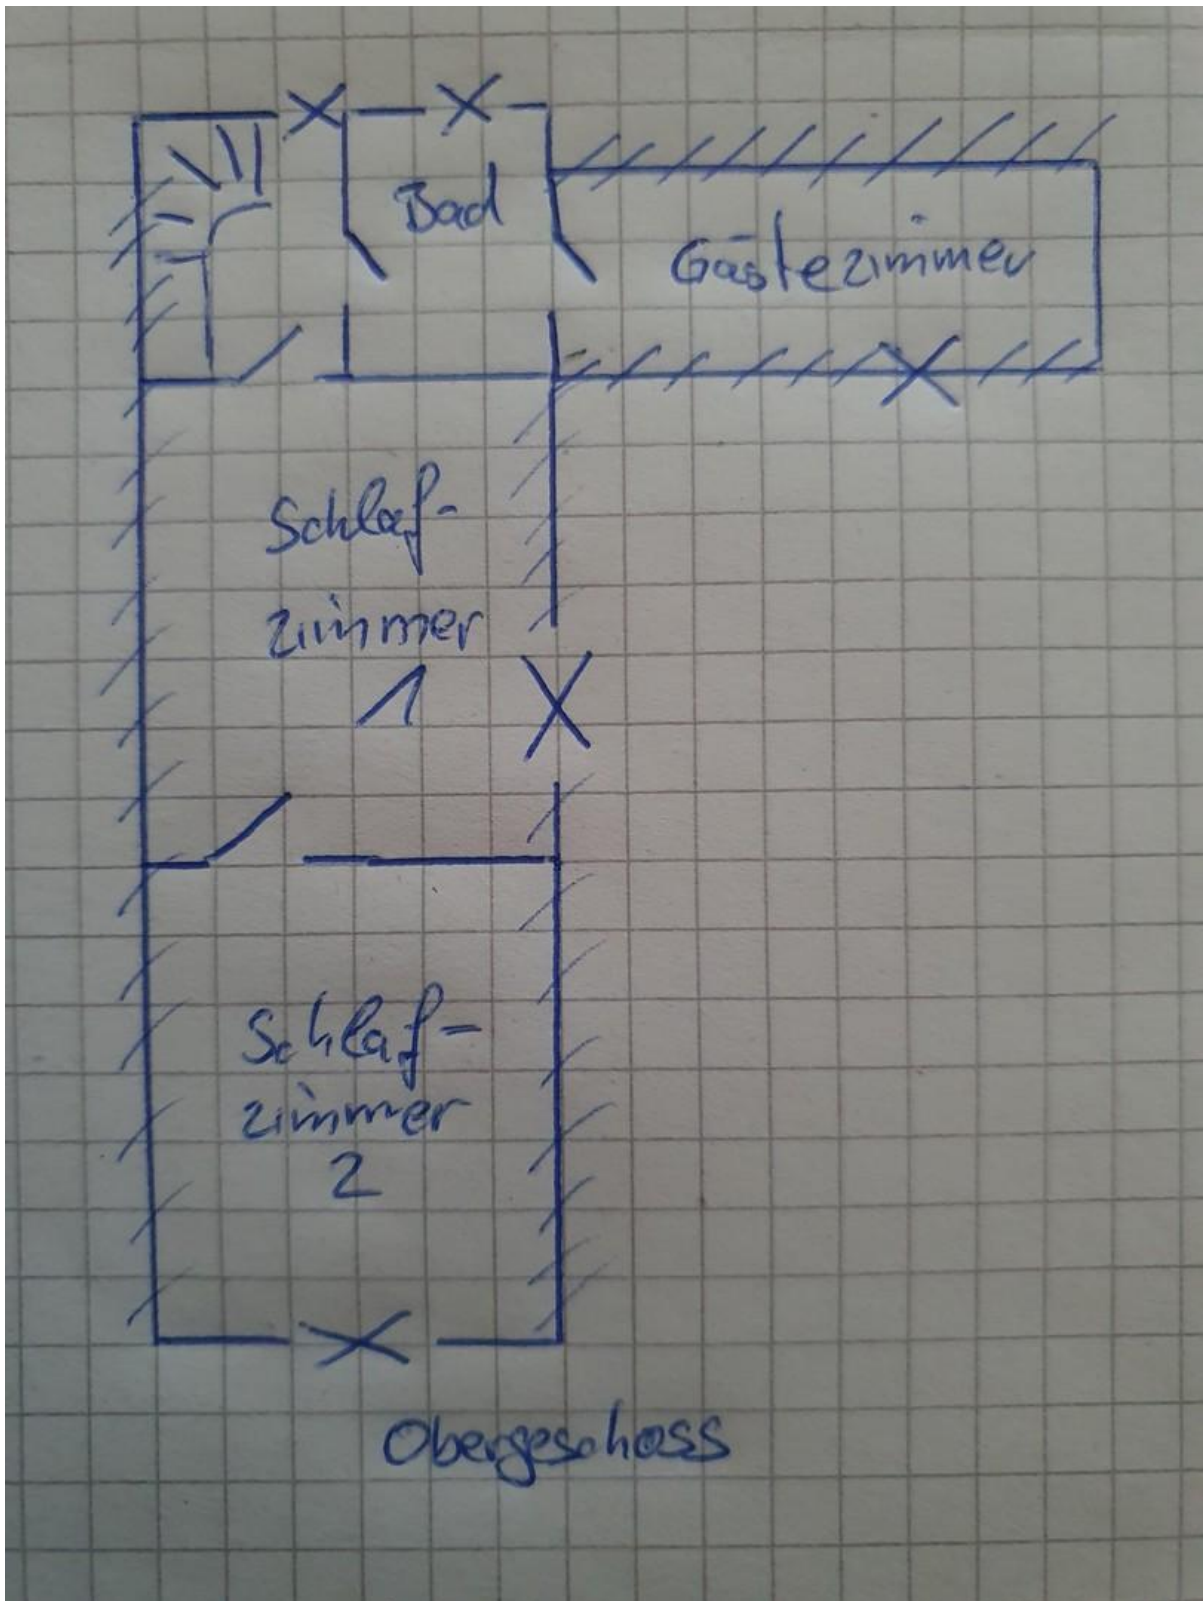 Bad
Gästezimmer
Schlaf-
zimmer
1
Schlaf-
zimmer
2
Obergeschoss